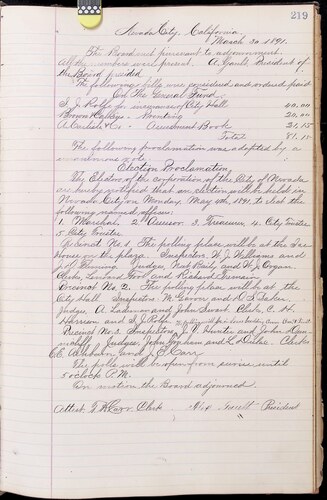 219
Nevada City, California,
March 30 1891.
The Board met pursuant to adjournment.
All members were present. A. Gault President of
the Board presided.
The following bills were considered and ordered paid
On the General Fund.
S. J. Rolfe for insurance of City Hall 40,00
Brown & Calkins - Printing 20,00
A. Carlisle & Co. - Assessment Book 21,15
Total 81,15
The following proclamation was adopted by a
unanimous vote.
Election Proclamation
The Electors of the Corporation of the City of Nevada
are hereby notified that an election will be held in
Nevada City on Monday, May 4th, 1891, to elect the
following named officers:
1. Marshal. 2 Assessor. 3 Treasurer. 4. City Trustee
5 City Trustee.
Precinct No. 1. The polling place will be at the
House on the plaza. Inspectors, W. J. Williams and
J. Fleming. Judges, and W. J. Organ.
Clerks, Leonard Ford and Richard
Precinct No. 2. The polling place will be at the
City Hall Inspectors M. Garver and
Judges, A. and John Clerks, C. H.
and
Precinct No. 3. Inspectors, and John
Judges, John Graham and Clerks
and J. E. Carr
The polls will be open from sunrise until
5 o'clock P.M.
On motion the Board adjourned.
Attest. T. H. Carr Clerk Alex Gault President